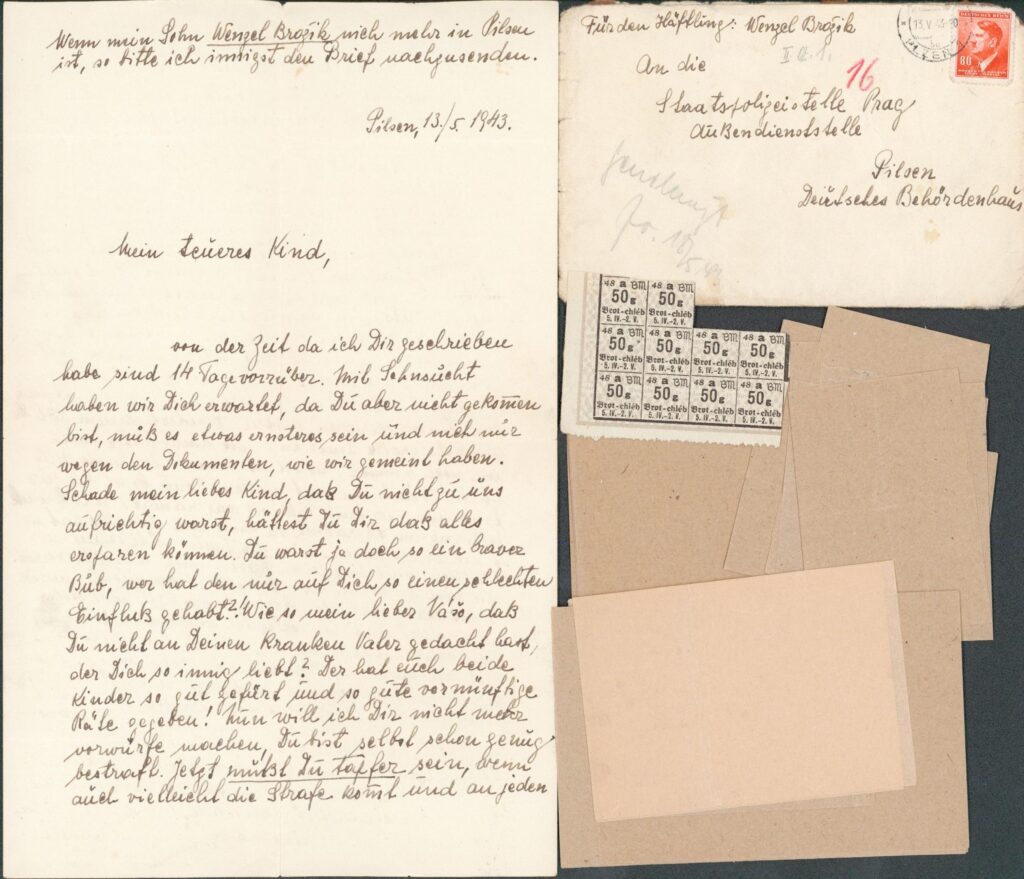 Wenn mein Sohn Wenzel Brožik nich mehr in Pilsen
ist, so bitte ich innigst den Brief nachzusenden.
Pilsen, 13./5. 1943.
Mein teueres Kind,
von der Zeit da ich Dir geschrieben
habe sind 14 Tage vorrüber. Mit Sehnsucht
haben wir Dich erwartet, da Du aber nicht gekommen
bist, muß es etwas ernsteres sein und nich nur
wegen den Dokumenten, wie wir gemeint haben.
Schade mein liebes Kind, daß Du nicht zu uns
aufrichtig warst, hättest Du Dir daß alles
ersparen können. Du warst ja doch so ein braver
Bub, wer hat den nur auf Dich, so einen schlechten
Einfluß gehabt?! Wie so mein lieber Vášo, daß
Du nicht an Deinen kranken Vater gedacht hast,
der Dich so innig liebt? Der hat euch beide
Kinder so gut gefürt und so gute vernünftige
Räte gegeben! Nun will ich Dir nicht mehr
vorwürfe machen, Du bist selbst schon genug
bestraft. Jetzt mußt Du tapfer sein, wenn
auch vielleicht die Strafe komt und an jeden
Für den Häftling: Wenzel Brožik
16
An die
Staatspolizeistelle Prag
Außendienststelle
Pilsen
Deutsches Behördenhaus
DEUTSCHES REICH
80
48 a BM 48 a BM
50g 50g
Brot-chléb Brot-chléb
5. IV.-2. V. 5. IV.-2. V.
48 a BM 48 a BM 48 a BM 48 a BM
50g 50g 50g 50g
Brot-chléb Brot-chléb Brot-chléb Brot-chléb
5. IV.-2. V. 5. IV.-2. V. 5. IV.-2. V. 5. IV.-2. V.
48 a BM 48 a BM 48 a BM 48 a BM
50g 50g 50g 50g
Brot-chléb Brot-chléb Brot-chléb Brot-chléb
5. IV.-2. V. 5. IV.-2. V. 5. IV.-2. V. 5. IV.-2. V.